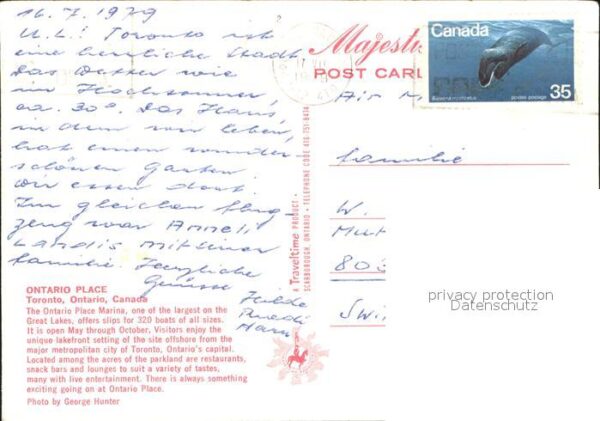 16. 7. 1979
M. L.! Toronto ist
eine herrliche Stadt.
Das Wetter wie
im Hochsommer,
ca. 30°. Das Haus,
in dem wir leben,
hat einen wunder-
schönen Garten.
Wir essen dort.
Im gleichen Flug-
zeug war Anneli
Landis mit seiner
Familie. Herzliche
Grüsse
Hilde
Ruedi
Hans
ONTARIO PLACE
Toronto, Ontario, Canada
The Ontario Place Marina, one of the largest on the
Great Lakes, offers slips for 320 boats of all sizes.
It is open May through October. Visitors enjoy the
unique lakefront setting of the site offshore from the
major metropolitan city of Toronto, Ontario's capital.
Located among the acres of the parkland are restaurants,
snack bars and lounges to suit a variety of tastes,
many with live entertainment. There is always something
exciting going on at Ontario Place.
Photo by George Hunter
A Traveltime PRODUCT
SCARBOROUGH, ONTARIO - TELEPHONE CODE 416 751-8414
Majest
POST CARD
Air M
Canada
postes postage
35
Familie
W.
Mut
803
Swi
privacy protection
Datenschutz